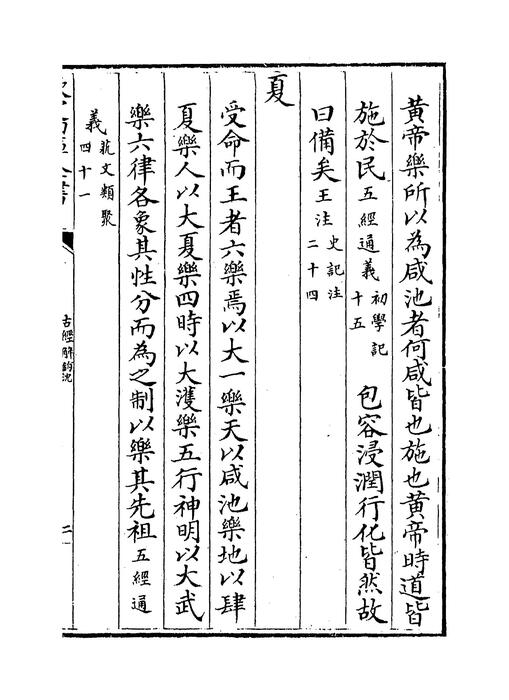 黄帝樂所以為咸池者何咸皆也施也黄帝時道皆
施於民五經通義初學記十五 包容浸潤行化皆然故
曰備矣王注史記注二十四
夏
受命而王者六樂焉以大一樂天以咸池樂地以肆
夏樂人以大夏樂四時以大濩樂五行神明以大武
樂六律各象其性分而為之制以樂其先祖五經通
義藝文類聚四十一
古經解鉤沈
二